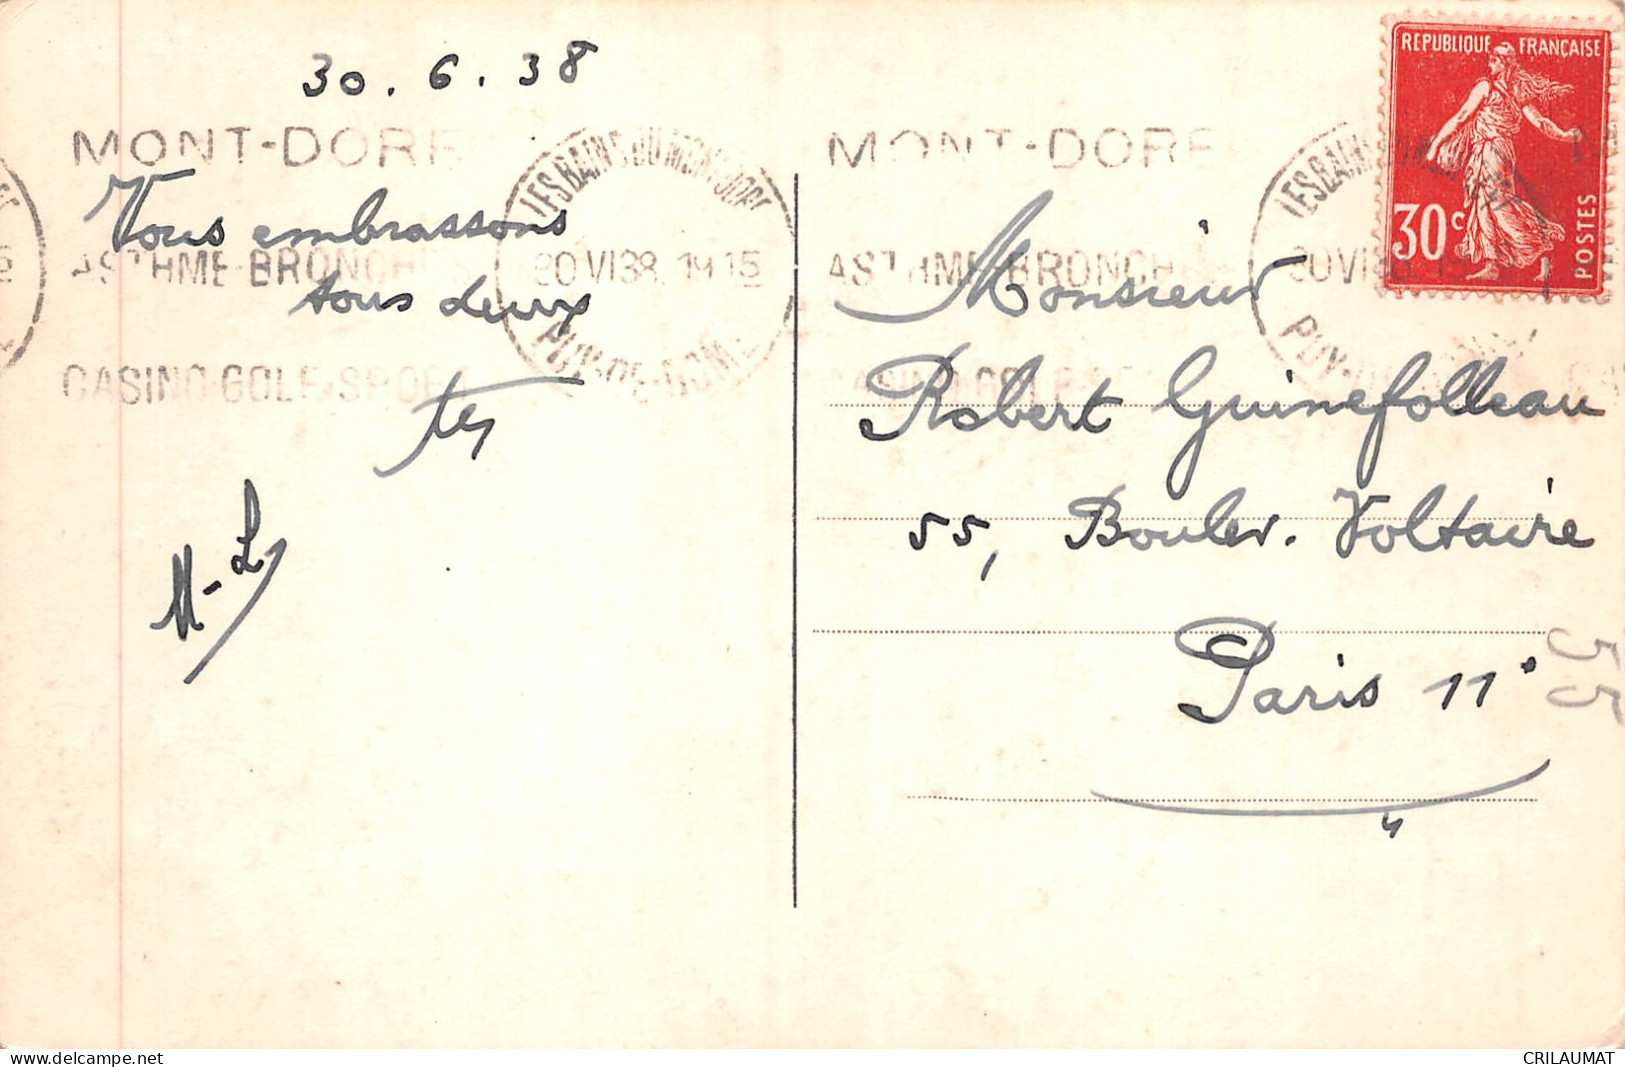 30.6.38
MONT-DORE
LES BAINS DU MONT-DORE
Vous embrassons
ASTHME-BRONCHES
30 VI 38. 19 15
tous deux
PUY-DE-DOME
CASINO-GOLF-SPORT
M-L
RÉPUBLIQUE FRANÇAISE
30c
POSTES
MONT-DORE
LES BAINS DU MONT-DORE
ASTHME-BRONCHES
30 VI 38. 19
PUY-DE-DOME
Monsieur
Robert Guinefolleau
55, Boulev. Voltaire
Paris 11°
55
delcampe.net
CRILAUMAT